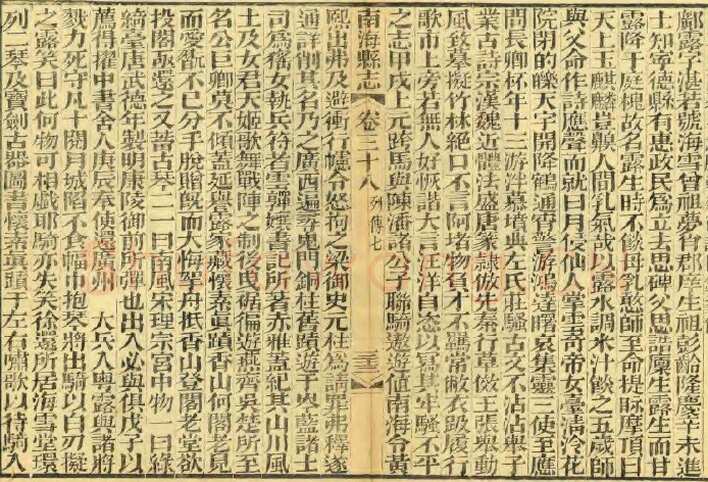 鄺露字湛若號海雪曾祖夢台郡庠生祖彭齡隆慶辛未進
士知寧德縣有惠政民爲立去思碑父思誥廩生露生而甘
露降于庭槐故名露生時不餤母乳憨師至命提眎摩頂曰
天上玉麒麟豈䫀人間乳氣哉以露水調米汁餤之五歲師
與父命作詩應聲而就曰月侵仙人掌
院閉的皪天宇開降鶴通宵警游鴻達曙哀集靈三使至應
問長卿杯年十三游泮墓墳典左氏莊騷古文不沾沾舉子
業古詩宗漢魏近體法盛唐篆隷倣先秦行草倣王張舉動
風致慕擬竹林絕口不言阿堵物負才不羈常敝衣趿履行
歌市上旁若無人好恢諧大言汪洋自恣以寫其牢騷不平
之志甲戌上元跨馬與陳潘諸公子聯騎遨遊值南海令黃
南海縣志 卷三十八 列傳七 三
熙出弗及避衝行幰令怒拘之梁御史元柱爲請罪弗釋遂
通詳削其名乃之廣西遍尋鬼門銅柱舊蹟遊于岑藍諸土
司爲猺女執兵符者雲嚲娘書記所著赤雅蓋紀其山川風
土及女君天姬歌舞戰陣之制後曳裾徧遊燕齊吳楚所至
名公巨卿莫不傾蓋延與露家藏懷素眞蹟香山何閣老見
而愛翫不已分手脫贈旣而大悔挐舟抵香山登閣老堂欲
投閣亟還之又蓄古琴二一曰南風宋理宗宮中物一曰綠
綺臺唐武德年製明康陵御前所彈也出入必與俱戊子以
薦得擢中書舍人庚辰奉使還廣州 大兵入粵露與諸將
戮力死守凡十閱月城陷不食幅巾抱琴將出騎以白刃擬
之露笑曰此何物可相戲耶騎亦失笑徐還所居海雪堂環
列二琴及寶劍古器圖書懷素眞蹟于左右嘯歌以待騎入